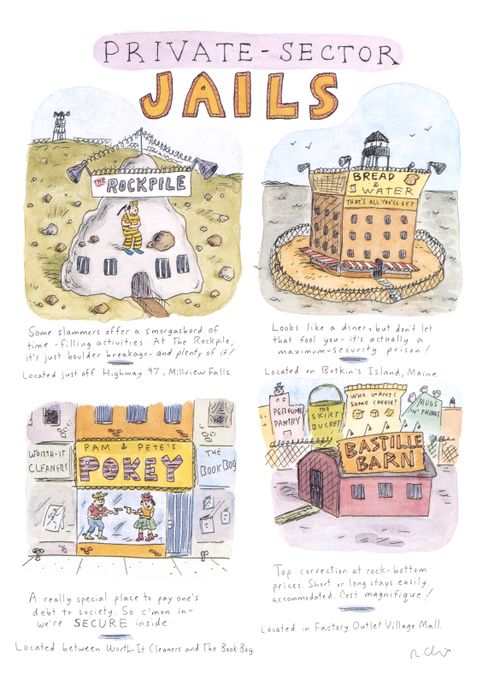 PRIVATE-SECTOR
JAILS
THE ROCKPILE
BREAD
& WATER
THAT'S ALL YOU'LL GET
Some slammers offer a smorgasbord of
time-filling activities. At The Rockpile,
it's just boulder breakage - and plenty of it!
Located just off Highway 97, Millview Falls.
Looks like a diner, but don't let
that fool you - it's actually a
maximum-security prison!
Located on Botkin's Island, Maine.
WORTH-IT
CLEANERS
PAM & PETE'S
POKEY
THE
BOOK BOG
PERFUME
PANTRY
THE
SKIRT
BUCKET
WHO WANTS
SOME CHEESE?
MUGS
N' THINGS
BASTILLE
BARN
A really special place to pay one's
debt to society. So c'mon in -
we're SECURE inside.
Located between Worth-It Cleaners and The Book Bog.
Top correction at rock-bottom
prices. Short or long stays easily
accommodated. C'est magnifique!
Located in Factory Outlet Village Mall.